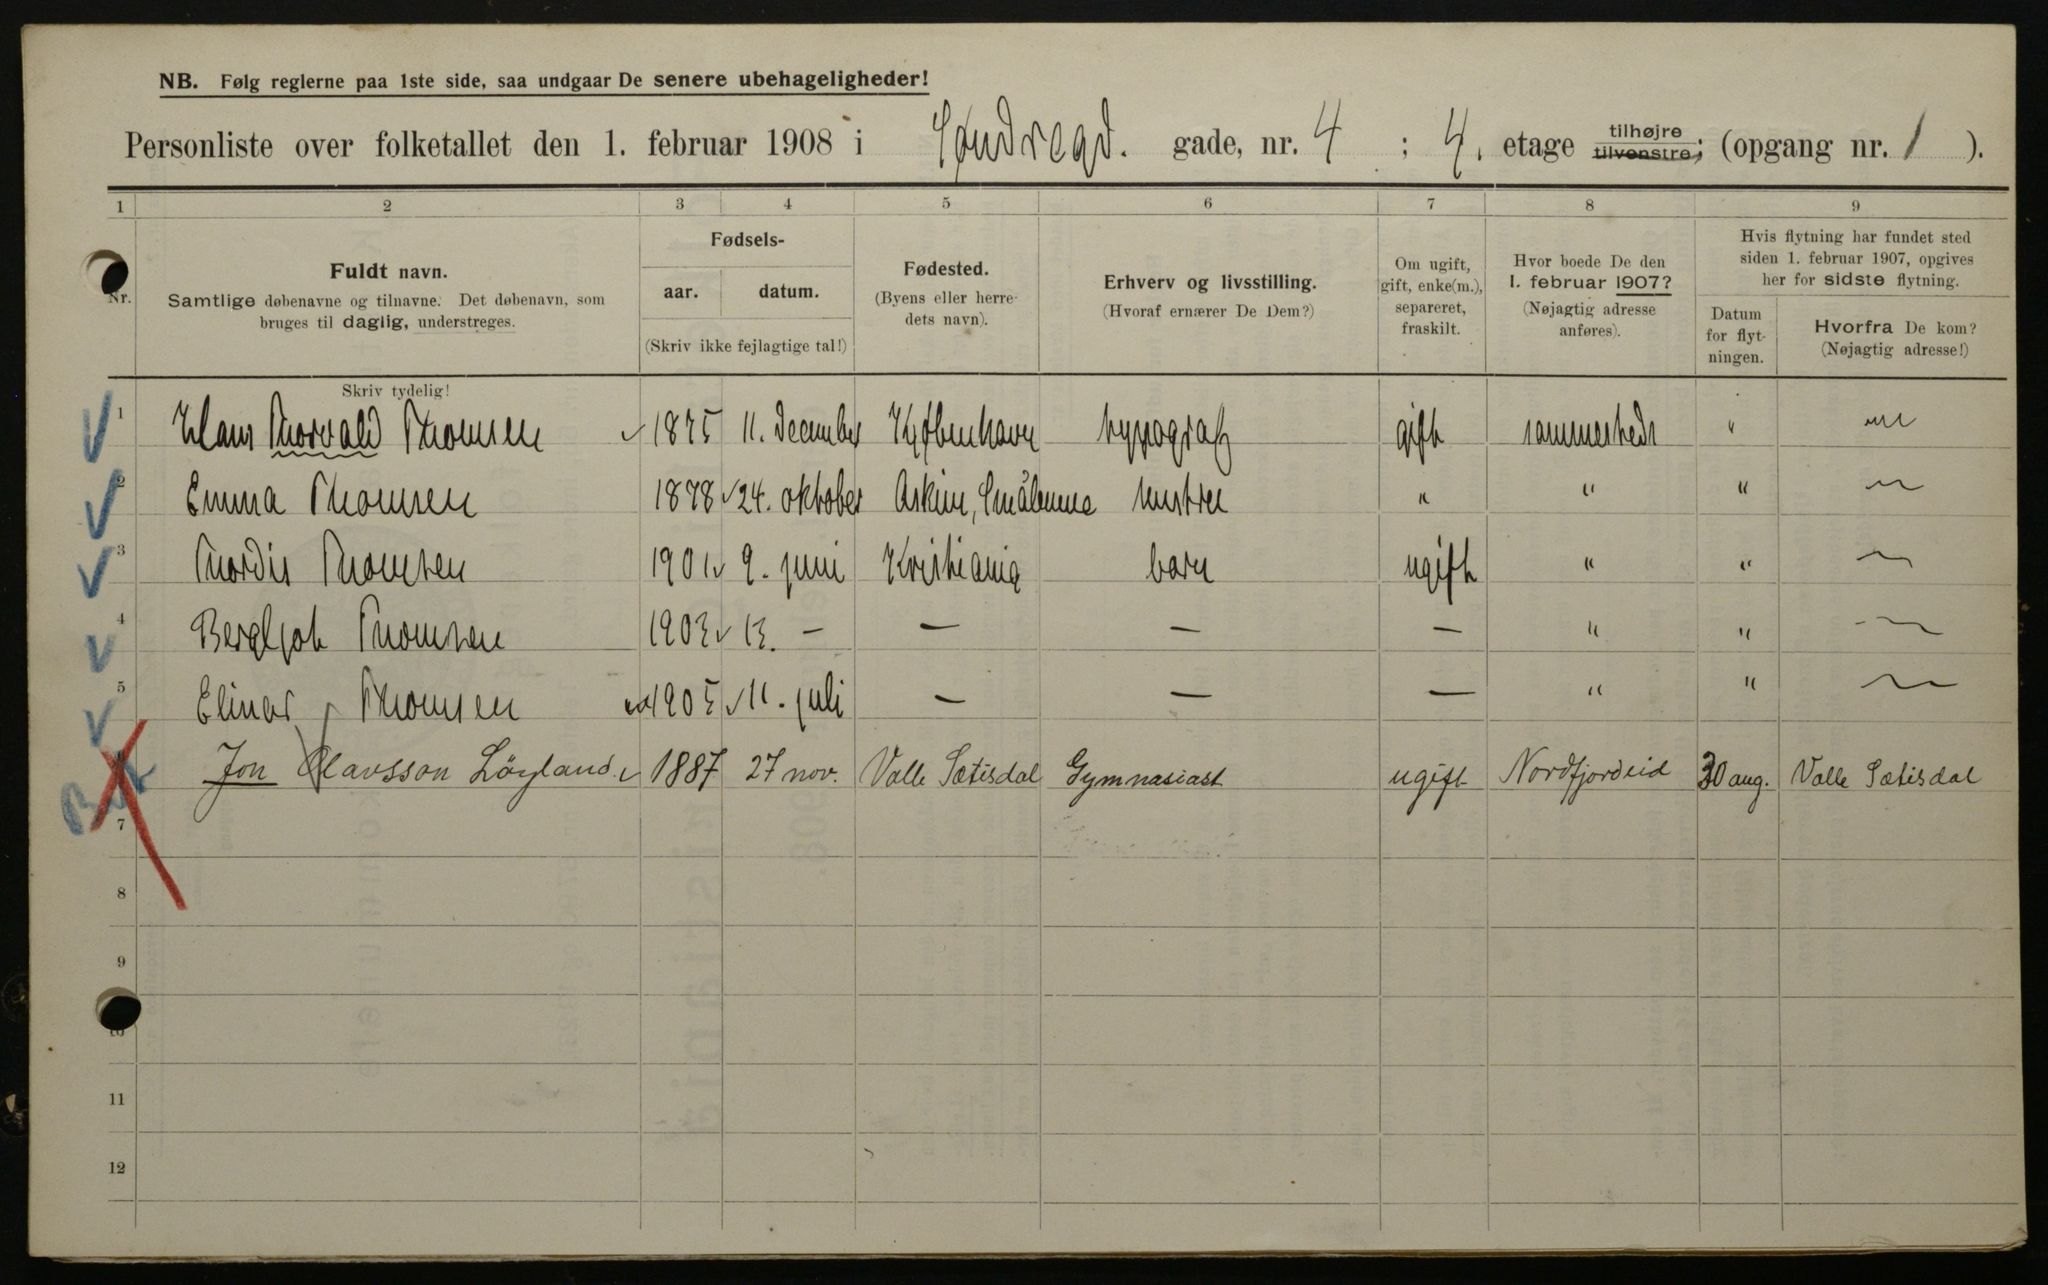 NB. Følg reglerne paa 1ste side, saa undgaar De senere ubehageligheder!
Personliste over folketallet den 1. februar 1908 i Søndregd. gade, nr. 4 ; 4. etage tilhøjre tilvenstre; (opgang nr. 1 ).
1 2 3 4 5 6 7 8 9
Nr.
Fuldt navn.
Samtlige døbenavne og tilnavne. Det døbenavn, som
bruges til daglig, understreges.
Skriv tydelig!
Fødsels-
aar. datum.
(Skriv ikke fejlagtige tal!)
Fødested.
(Byens eller herre-
dets navn).
Erhverv og livsstilling.
(Hvoraf ernærer De Dem?)
Om ugift,
gift, enke(m.),
separeret,
fraskilt.
Hvor boede De den
1. februar 1907?
(Nøjagtig adresse
anføres).
Hvis flytning har fundet sted
siden 1. februar 1907, opgives
her for sidste flytning.
Datum
for flyt-
ningen.
Hvorfra De kom?
(Nøjagtig adresse!)
1 Hans Thorvald Thomsen 1875 11. december København typograf gift sammesteds " —
2 Emma Thomsen 1878 24. oktober Askim, Smålenene hustru " " " —
3 Thordis Thomsen 1901 9. juni Kristiania barn ugift " " —
4 Bergljot Thomsen 1903 13. — — — — " " —
5 Elinar Thomsen 1905 11. juli — — — " " —
Jon Olavsson Löyland 1887 27 nov. Valle Sætisdal Gymnasiast ugift Nordfjordeid 30 aug. Valle Sætisdal
7
8
9
10
11
12